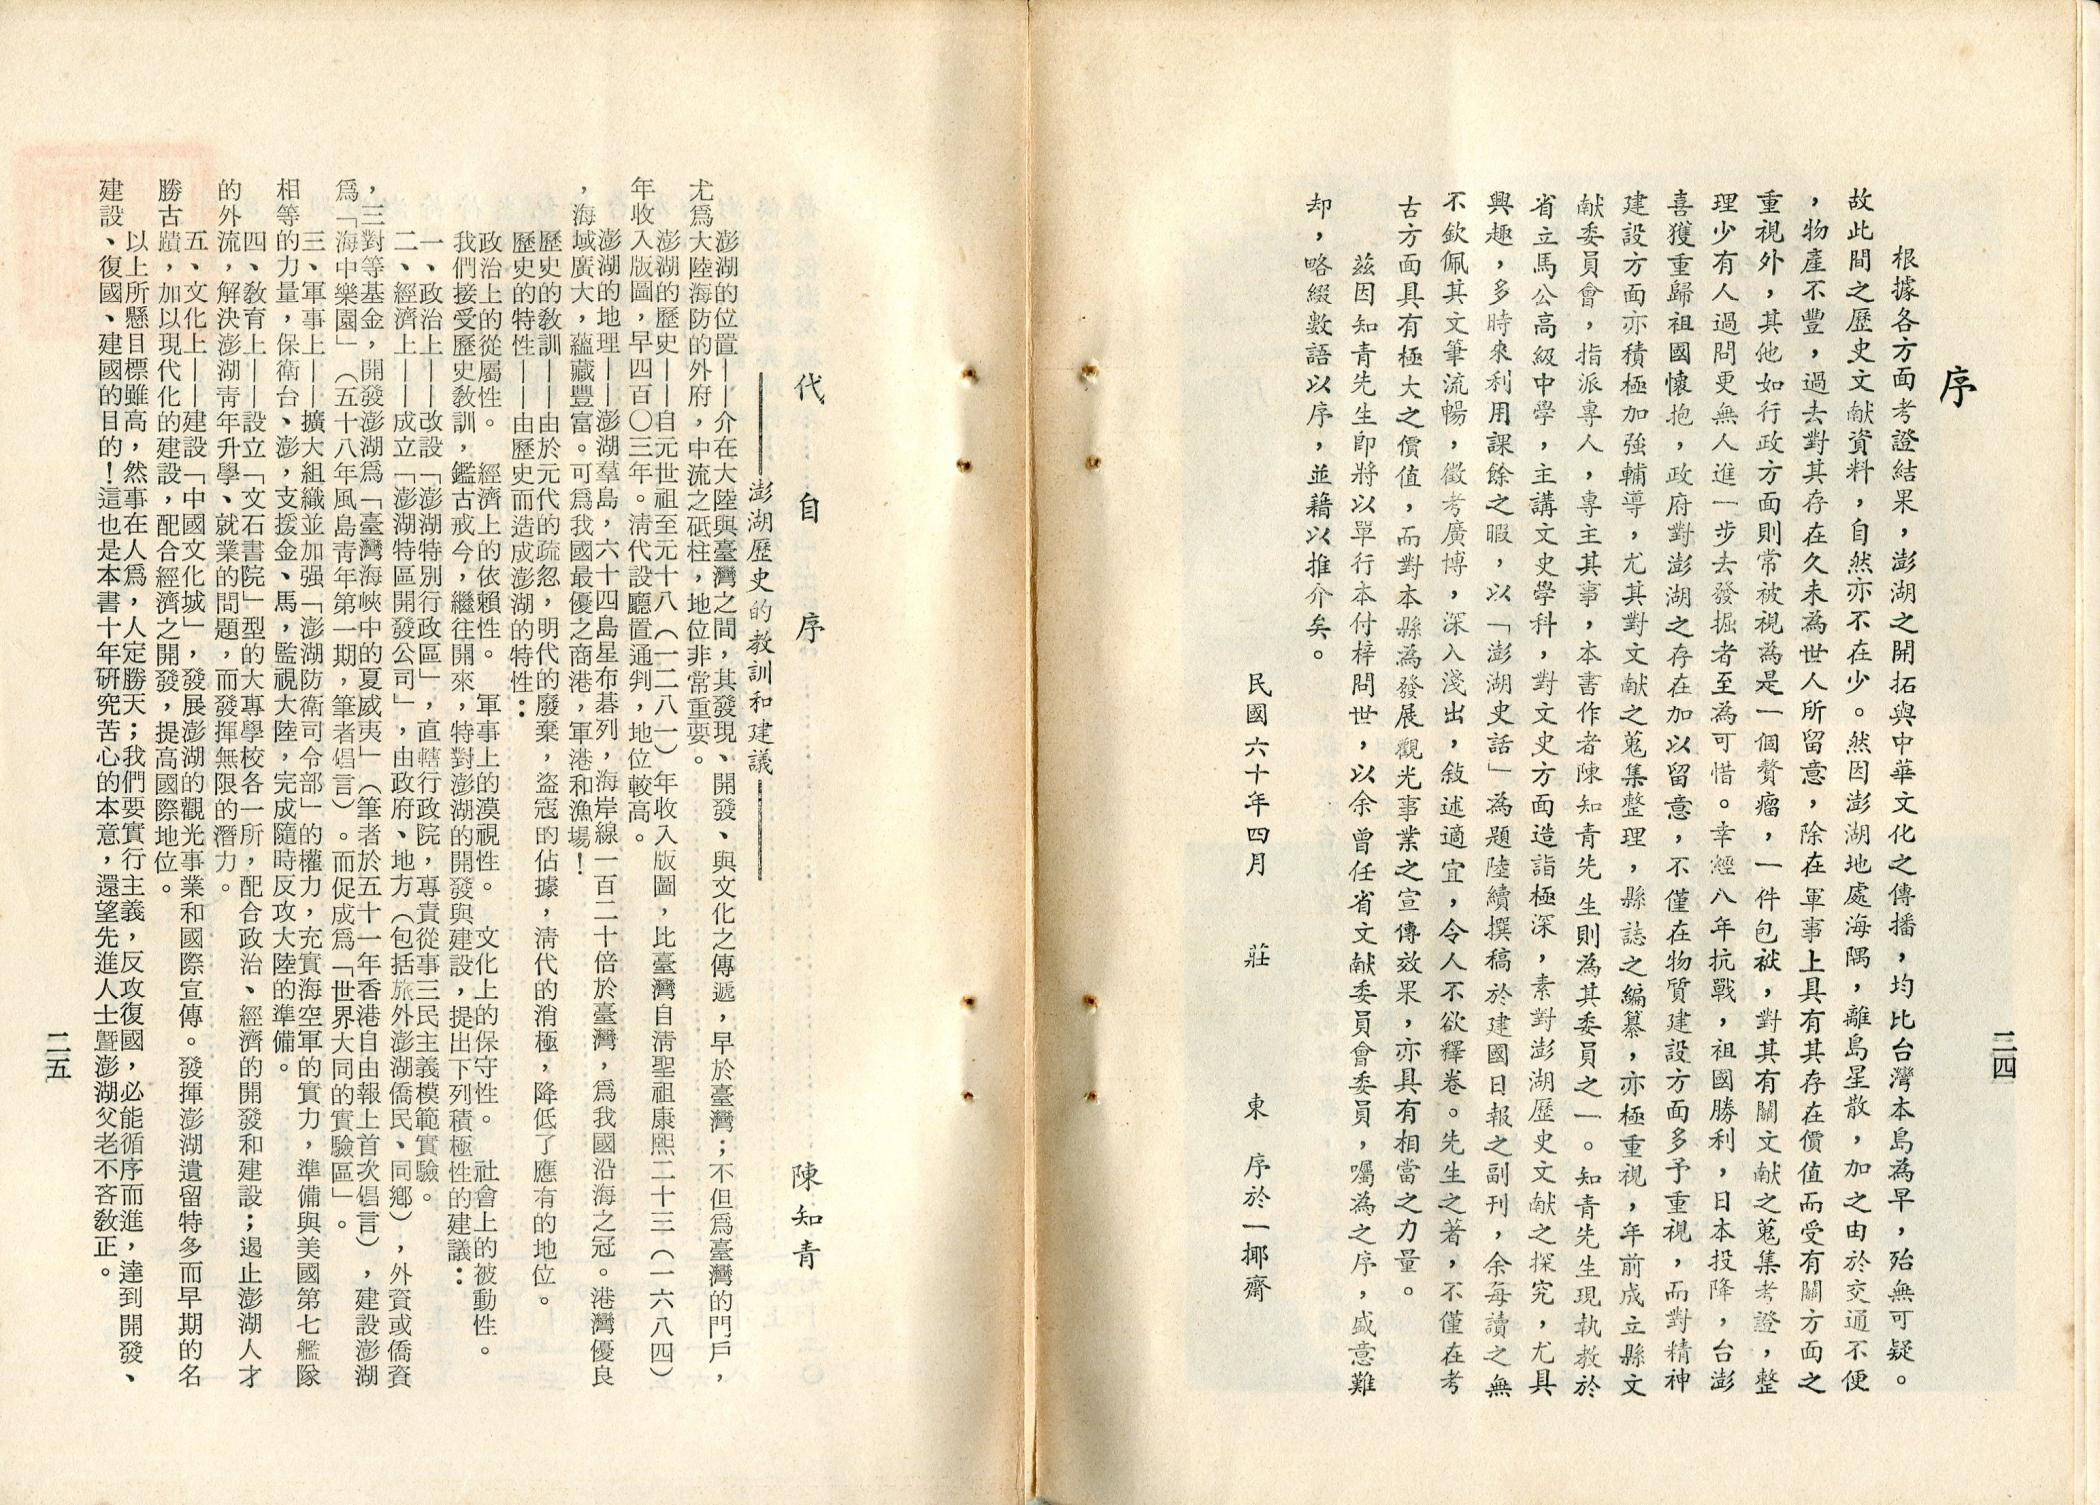 序
根據各方面考證結果，澎湖之開拓與中華文化之傳播，均比台灣本島為早，殆無可疑。
故此間之歷史文献資料，自然亦不在少。然因澎湖地處海隅，離島星散，加之由於交通不便
，物產不豐，過去對其存在久未為世人所留意，除在軍事上具有其存在價值而受有關方面之
重視外，其他如行政方面則常被視為是一個贅瘤，一件包袱，對其有關文献之蒐集考證，整
理少有人過問更無人進一步去發掘者至為可惜。幸經八年抗戰，祖國勝利，日本投降，台澎
喜獲重歸祖國懷抱，政府對澎湖之存在加以留意，不僅在物質建設方面多予重視，而對精神
建設方面亦積極加強輔導，尤其對文献之蒐集整理，縣誌之編纂，亦極重視，年前成立縣文
献委員會，指派專人，專主其事，本書作者陳知青先生則為其委員之一。知青先生現執教於
省立馬公高級中學，主講文史學科，對文史方面造詣極深，素對澎湖歷史文献之探究，尤具
興趣，多時來利用課餘之暇，以「澎湖史話」為題陸續撰稿於建國日報之副刊，余每讀之無
不欽佩其文筆流暢，徵考廣博，深入淺出，敍述適宜，令人不欲釋卷。先生之著，不僅在考
古方面具有極大之價值，而對本縣為發展觀光事業之宣傳效果，亦具有相當之力量。
茲因知青先生即將以單行本付梓問世，以余曾任省文献委員會委員，囑為之序，盛意難
却，略綴數語以序，並藉以推介矣。
民國六十年四月　莊　東　序於一揶齋
二四
代自序　陳知青
——澎湖歷史的教訓和建議——
澎湖的位置——介在大陸與臺灣之間，其發現、開發、與文化之傳遞，早於臺灣；不但爲臺灣的門戶，
尤爲大陸海防的外府，中流之砥柱，地位非常重要。
澎湖的歷史——自元世祖至元十八（一二八一）年收入版圖，比臺灣自清聖祖康熙二十三（一六八四）
年收入版圖，早四百〇三年。清代設廳置通判，地位較高。
澎湖的地理——澎湖羣島，六十四島星布碁列，海岸線一百二十倍於臺灣，爲我國沿海之冠。港灣優良
，海域廣大，蘊藏豐富。可爲我國最優之商港，軍港和漁場！
歷史的敎訓——由於元代的疏忽，明代的廢棄，盜寇的佔據，清代的消極，降低了應有的地位。
歷史的特性——由歷史而造成澎湖的特性：
政治上的從屬性。　經濟上的依賴性。　軍事上的漠視性。　文化上的保守性。　社會上的被動性。
我們接受歷史敎訓，鑑古戒今，繼往開來，特對澎湖的開發與建設，提出下列積極性的建議：
一、政治上——改設「澎湖特別行政區」，直轄行政院，專責從事三民主義模範實驗。
二、經濟上——成立「澎湖特區開發公司」，由政府、地方（包括旅外澎湖僑民、同鄉），外資或僑資
，三對等基金，開發澎湖爲「臺灣海峽中的夏威夷」（筆者於五十一年香港自由報上首次倡言），建設澎湖
爲「海中樂園」（五十八年風島青年第一期，筆者倡言）。而促成爲「世界大同的實驗區」。
三、軍事上——擴大組織並加强「澎湖防衛司令部」的權力，充實海空軍的實力，準備與美國第七艦隊
相等的力量，保衛台、澎，支援金、馬，監視大陸，完成隨時反攻大陸的準備。
四、敎育上——設立「文石書院」型的大專學校各一所，配合政治、經濟的開發和建設；遏止澎湖人才
的外流，解決澎湖青年升學、就業的問題，而發揮無限的潛力。
五、文化上——建設「中國文化城」，發展澎湖的觀光事業和國際宣傳。發揮澎湖遺留特多而早期的名
勝古蹟，加以現代化的建設，配合經濟之開發，提高國際地位。
以上所懸目標雖高，然事在人爲，人定勝天；我們要實行主義，反攻復國，必能循序而進，達到開發、
建設、復國、建國的目的！這也是本書十年研究苦心的本意，還望先進人士曁澎湖父老不吝敎正。
二五